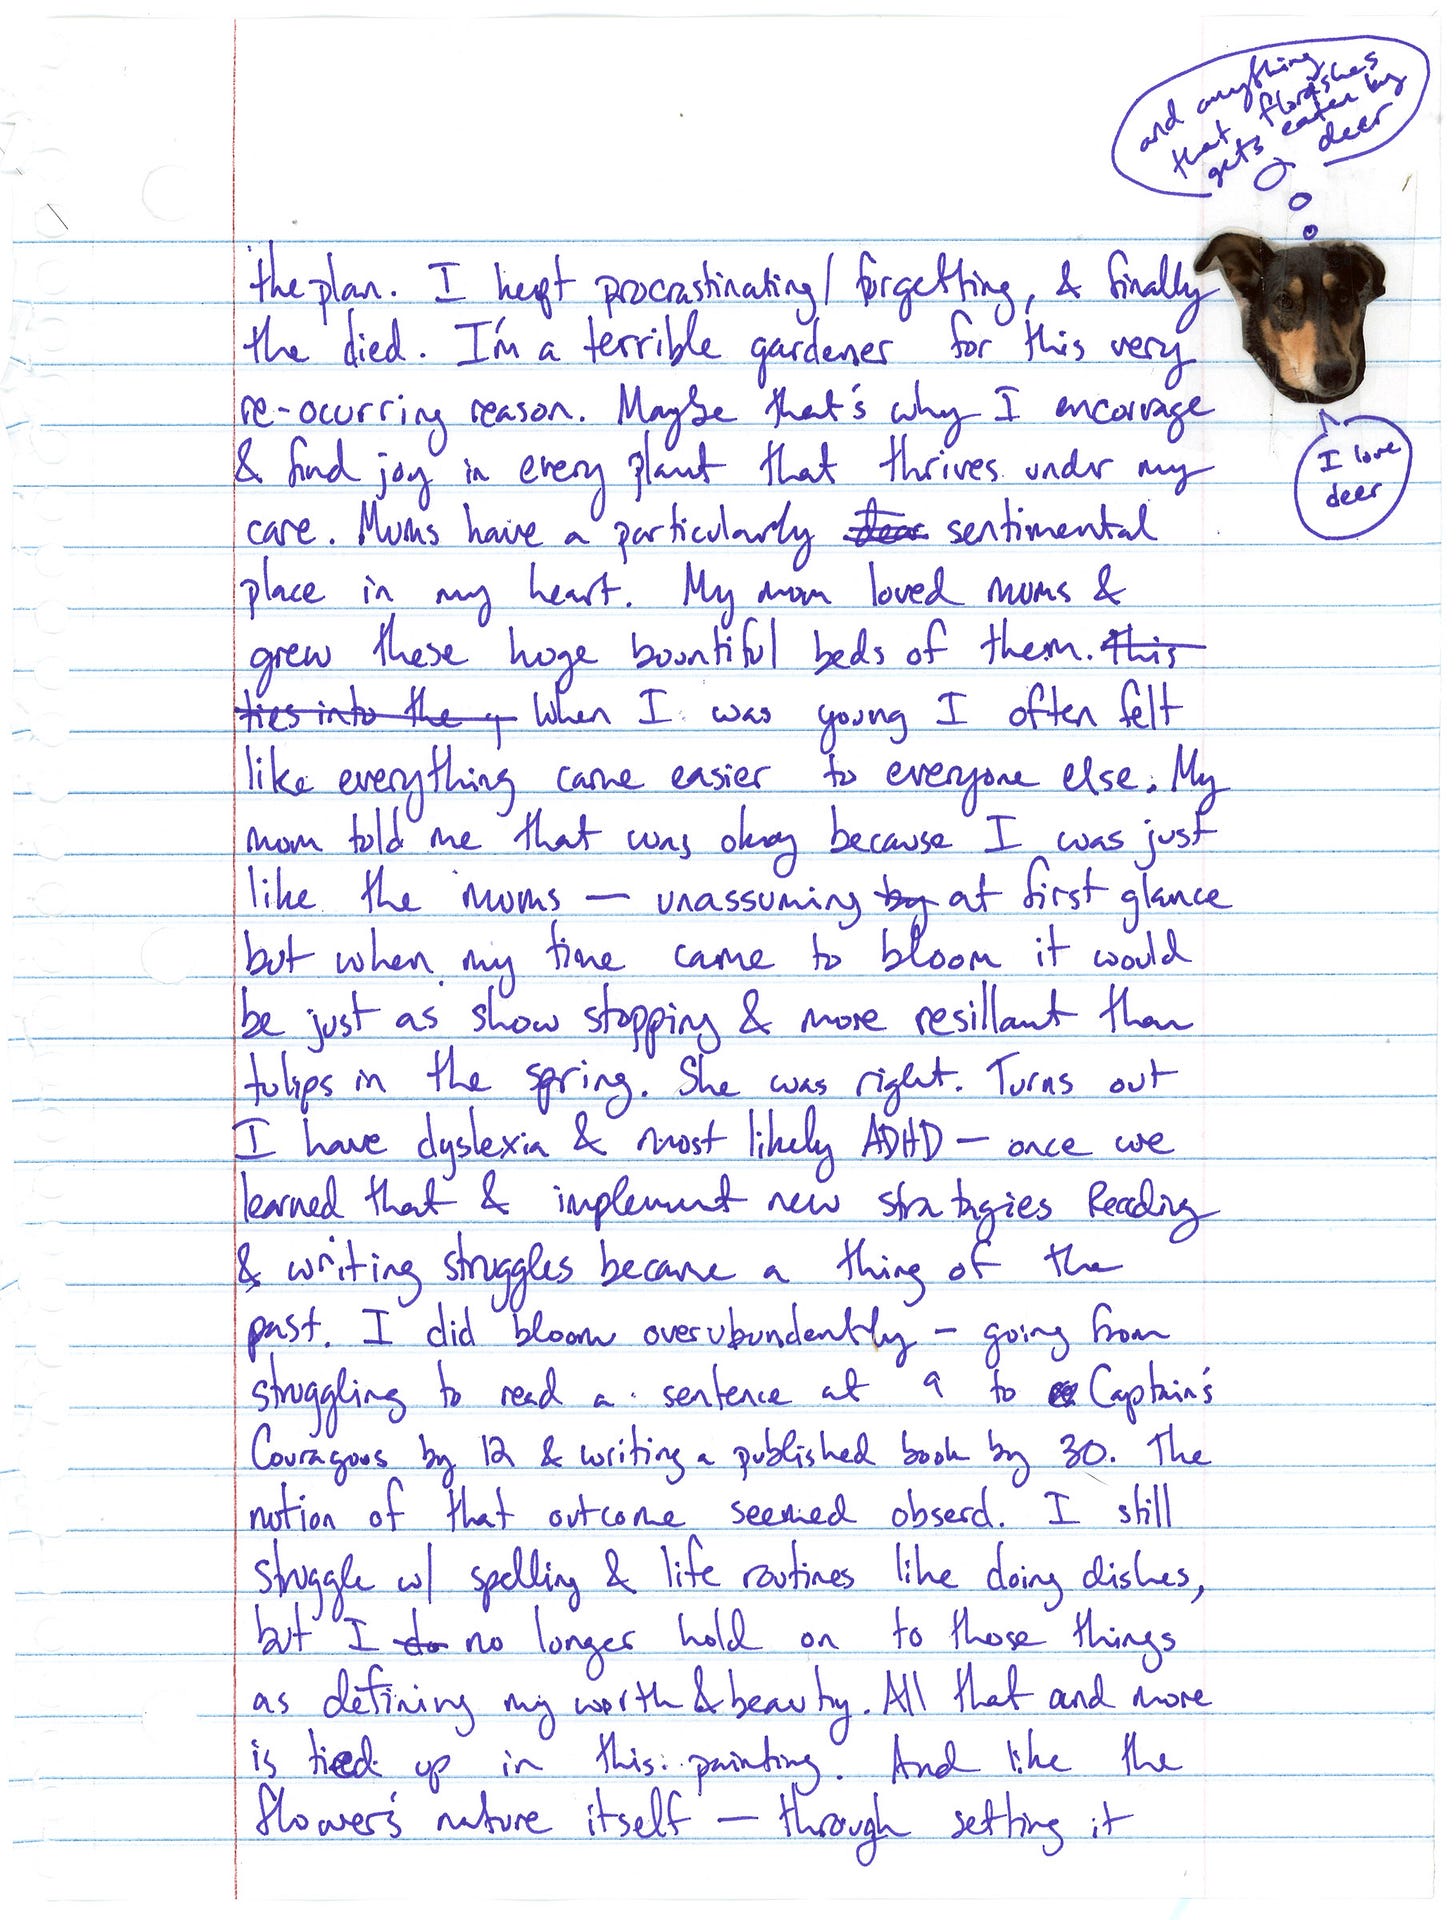 and anything
that florishes
gets eaten by
deer
the plan. I kept procrastinating/forgetting, & finally
the died. I'm a terrible gardener for this very
re-ocurring reason. Maybe that's why I encorage
& find joy in every plant that thrives undr my
care. Mums have a particularly dear sentimental
place in my heart. My mom loved mums &
grew these huge bountiful beds of them. this
ties into the , When I was young I often felt
like everything came easier to everyone else. My
mom told me that was okay because I was just
like the mums — unassuming by at first glance
but when my time came to bloom it would
be just as show stopping & more resillant than
tulips in the spring. She was right. Turns out
I have dyslexia & most likely ADHD — once we
learned that & implement new stratagies Reading
& writing struggles became a thing of the
past. I did bloom overubundently – going from
struggling to read a sentence at 9 to Captain's
Couragous by 12 & writing a published book by 30. The
notion of that outcome seemed obserd. I still
struggle w/ spelling & life routines like doing dishes,
but I do no longer hold on to those things
as defining my worth & beauty. All that and more
is tied up in this painting. And like the
flower's nature itself — through setting it
I love
deer